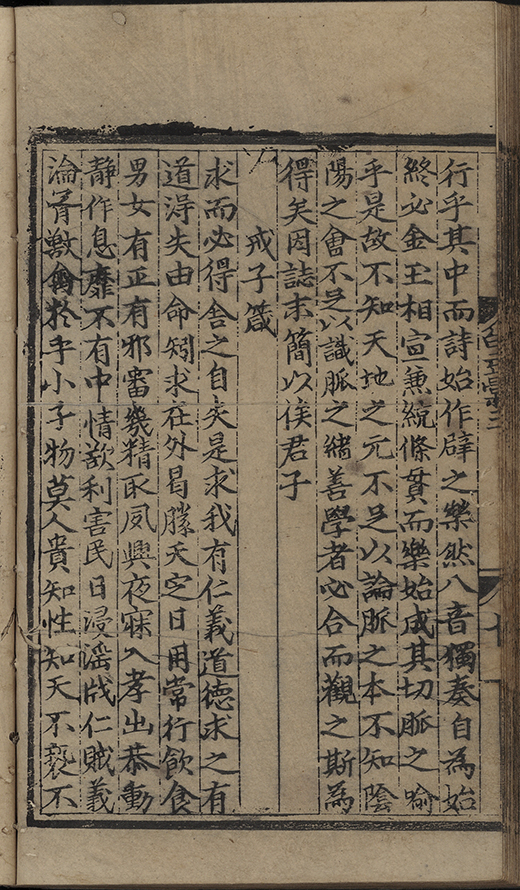 行乎其中而詩始作辟之樂然八音獨奏自為始
終必金玉相宣兼統條貫而樂始成其切脈之喻
乎是故不知天地之元不足以論脈之本不知陰
陽之會不足以識脈之緒善學者必合而觀之斯為
得矣因誌末簡以俟君子
戒子箴
求而必得舍之自失是求我有仁義道德求之有
道得失由命矧求在外曷勝天定日用常行飲食
男女有正有邪審幾精取夙興夜寐入孝出恭動
靜作息靡不有中情欲利害民日浸淫戕仁賊義
淪胥獸禽於乎小子物莫人貴知性知天不褻不